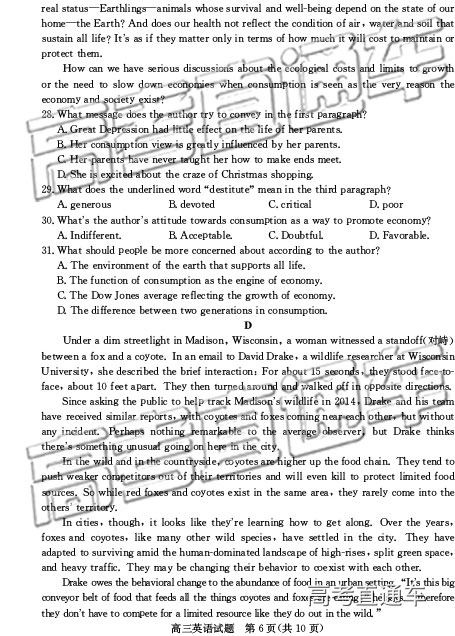 real status—Earthlings—animals whose survival and well-being depend on the state of our
home—the Earth? And does our health not reflect the condition of air, water and soil that
sustain all life? It's as if they matter only in terms of how much it will cost to maintain or
protect them.
How can we have serious discussions about the ecological costs and limits to growth
or the need to slow down economies when consumption is seen as the very reason the
economy and society exist?
28. What message does the author try to convey in the first paragraph?
A. Great Depression had little effect on the life of her parents.
B. Her consumption view is greatly influenced by her parents.
C. Her parents have never taught her how to make ends meet.
D. She is excited about the craze of Christmas shopping.
29. What does the underlined word "destitute" mean in the third paragraph?
A. generous B. devoted C. critical D. poor
30. What's the author's attitude towards consumption as a way to promote economy?
A. Indifferent. B. Acceptable. C. Doubtful. D. Favorable.
31. What should people be more concerned about according to the author?
A. The environment of the earth that supports all life.
B. The function of consumption as the engine of economy.
C. The Dow Jones average reflecting the growth of economy.
D. The difference between two generations in consumption.
D
Under a dim streetlight in Madison, Wisconsin, a woman witnessed a standoff(对峙)
between a fox and a coyote. In an email to David Drake, a wildlife researcher at Wisconsin
University, she described the brief interaction: For about 15 seconds, they stood face-to-
face, about 10 feet apart. They then turned around and walked off in opposite directions.
Since asking the public to help track Madison's wildlife in 2014, Drake and his team
have received similar reports, with coyotes and foxes coming near each other, but without
any incident. Perhaps nothing remarkable to the average observer, but Drake thinks
there's something unusual going on here in the city.
In the wild and in the countryside, coyotes are higher up the food chain. They tend to
push weaker competitors out of their territories and will even kill to protect limited food
sources. So while red foxes and coyotes exist in the same area, they rarely come into the
others' territory.
In cities, though, it looks like they're learning how to get along. Over the years,
foxes and coyotes, like many other wild species, have settled in the city. They have
adapted to surviving amid the human-dominated landscape of high-rises, split green space,
and heavy traffic. They may be changing their behavior to coexist with each other.
Drake owes the behavioral change to the abundance of food in an urban setting. "It's this big
conveyor belt of food that feeds all the things coyotes and foxes are eating," he says. "Therefore
they don't have to compete for a limited resource like they do out in the wild."
高三英语试题 第 6 页(共 10 页)
高考直通车